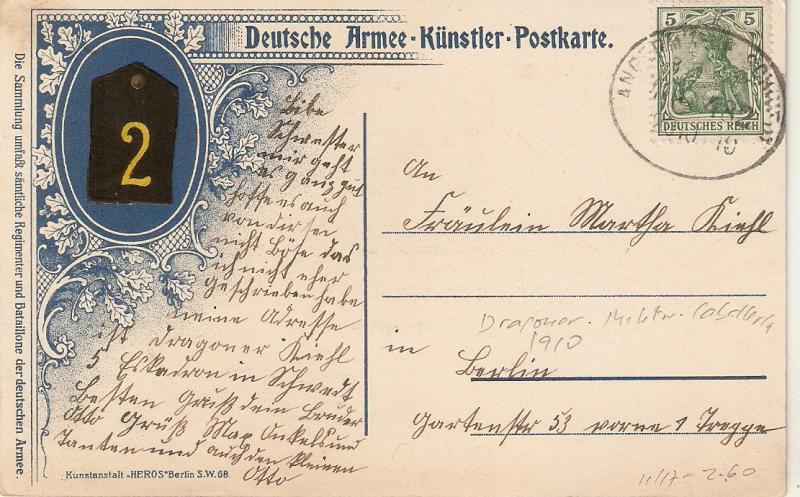 Deutsche Armee-Künstler-Postkarte.
5 5
DEUTSCHES REICH
10
Die Sammlung umfaßt sämtliche Regimenter und Bataillone der deutschen Armee.
2
Libe
Schwester
mir geht
es ganz gut
hoffe es auch
von dir sei
nicht Böse das
ich nicht eher
geschrieben habe
meine Adresse
ist Dragoner Kiehl
5 Eskadron in Schwedt
Besten Gruß dem Bruder
Otto Grüß Max Onkels und
Tanten und auch den kleinen
Otto
An
Fräulein Martha Kiehl
in
Berlin
Gartenstr 53 vorne 1 Treppe
Dragoner
1910
11/17-2-60
Kunstanstalt „HEROS" Berlin S.W. 68.